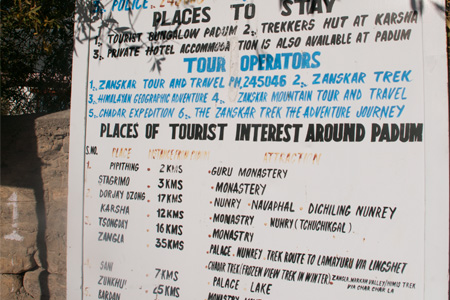 POLICE.
PLACES TO STAY
1., TOURIST BUNGALOW PADUM 2., TREKKERS HUT AT KARSHA
3., PRIVATE HOTEL ACCOMMODATION IS ALSO AVAILABLE AT PADUM
TOUR OPERATORS
1., ZANSKAR TOUR AND TRAVEL PH, 245046 2., ZANSKAR TREK
3., HIMALAYAN GEOGRAPHIC ADVENTURE 4., ZANSKAR MOUNTAIN TOUR AND TRAVEL
5., CHADAR EXPEDITION 6., THE ZANSKAR TREK THE ADVENTURE JOURNEY
PLACES OF TOURIST INTEREST AROUND PADUM
S.NO. PLACE DISTANCE FROM PADUM ATTRACTION
1. PIPITHING • 2 KMS • GURU MONASTERY
STAGRIMO • 3 KMS • MONASTERY
DORJAY DZONG • 17 KMS • NUNRY • NAVAPHAL • DICHILING NUNREY
KARSHA 12 KMS • MONASTRY • NUHRY (TCHUCHIKGAL).
TSONGORY 16 KMS • MONASTRY
ZANGLA 35 KMS • PALACE. NUNREY. TREK ROUTE TO LAMAYURU VIA LINGSHET
CHADR TREK (FROZEN VIEW TREK IN WINTER). ZANGLA, MARKAH VALLEY/HIMIS TREK
VIA CHAR CHAR LA
SANI 7 KMS • PALACE LAKE
ZUNKHUL
BARDAN